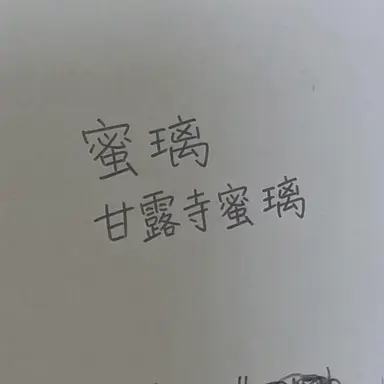 蜜璃
甘露寺蜜璃